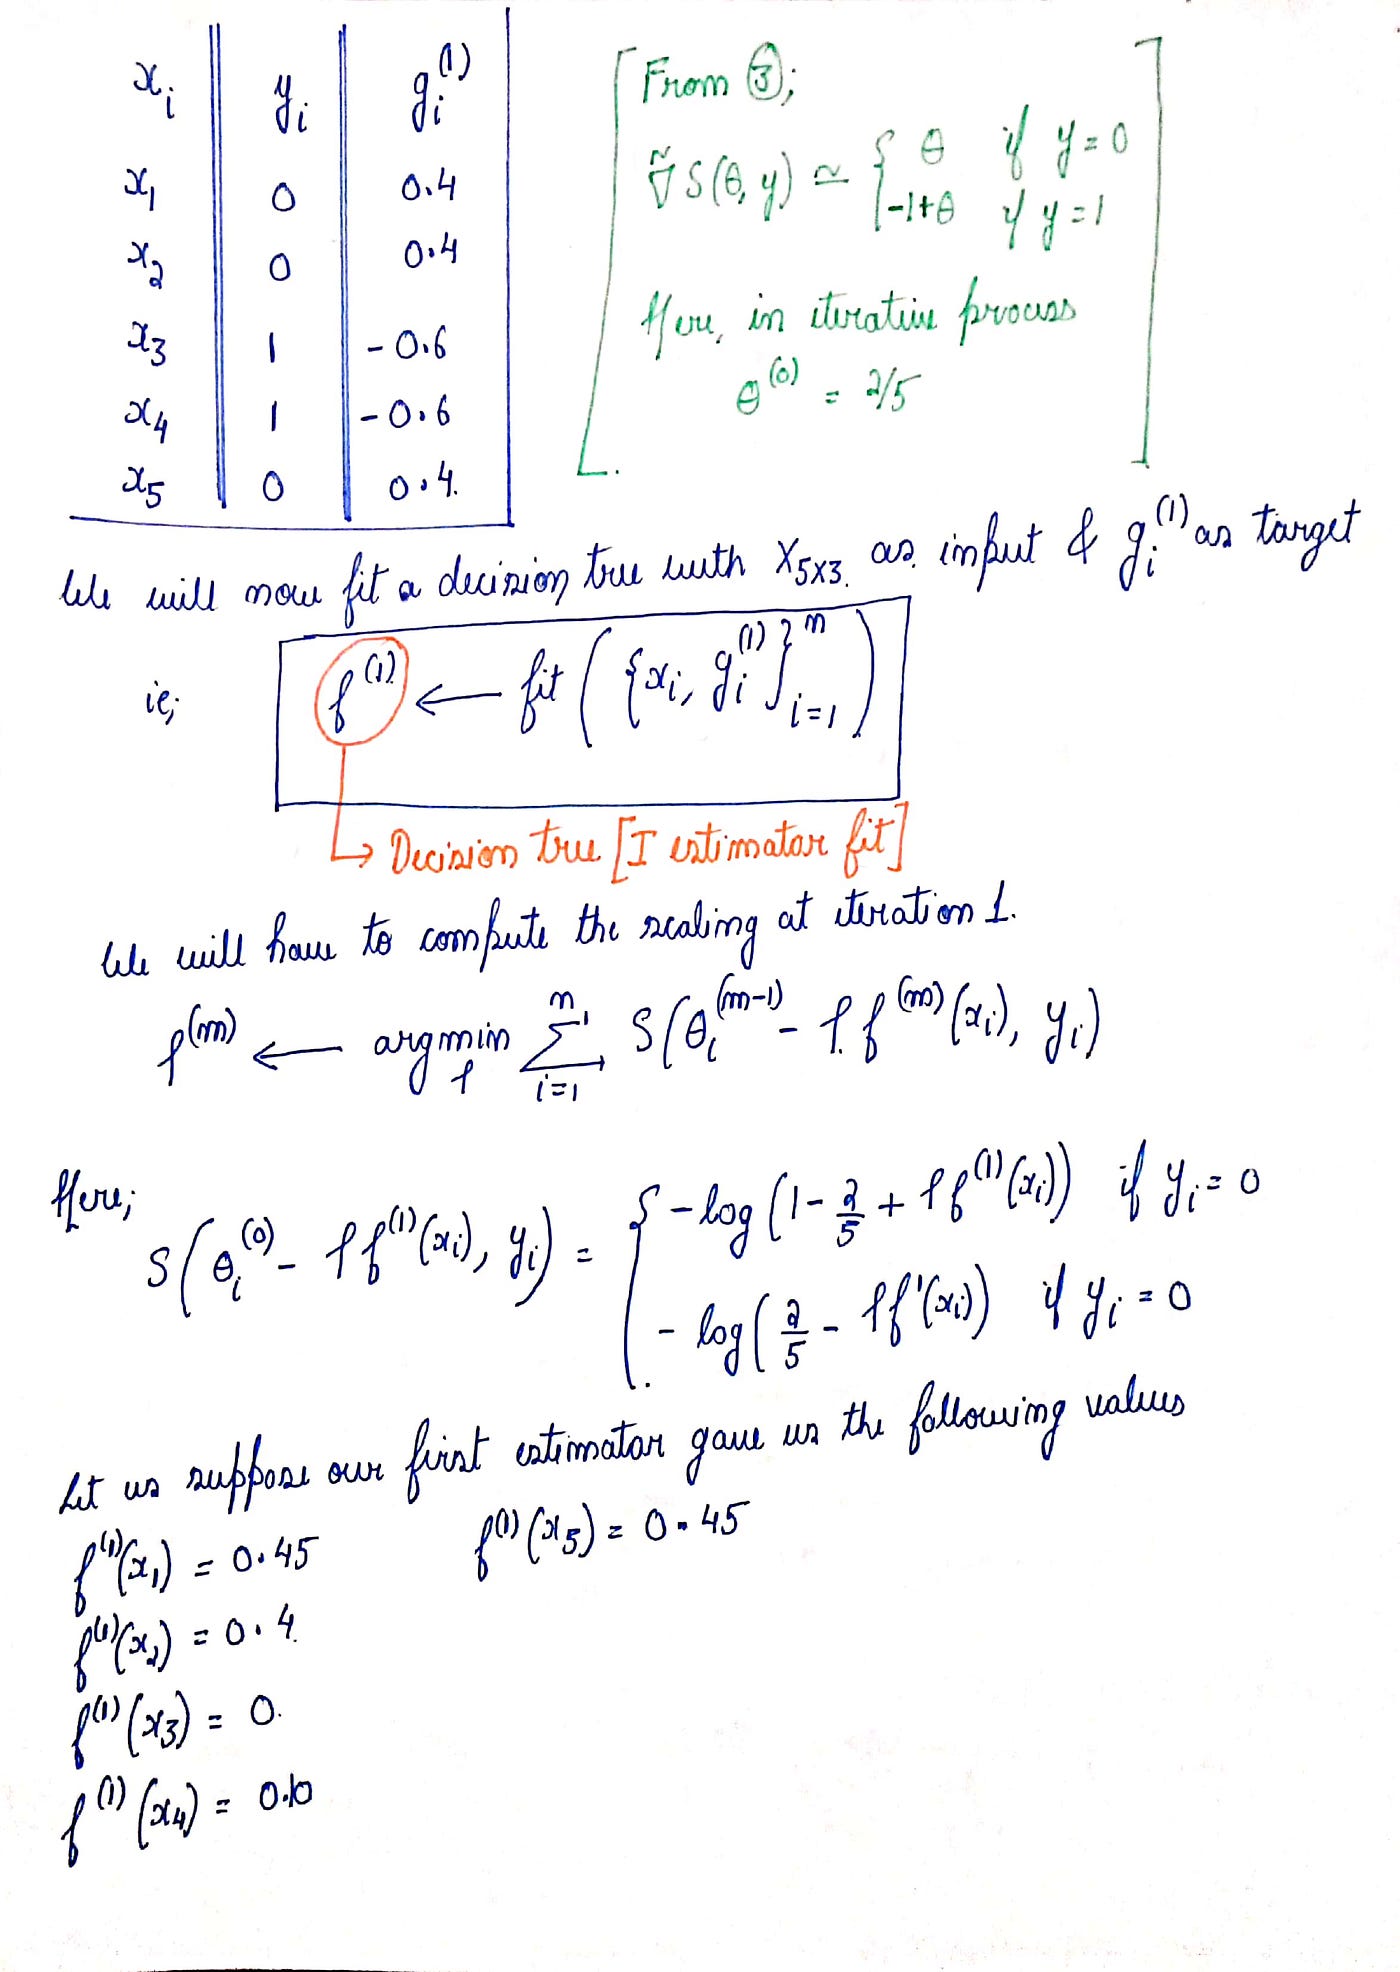 xᵢ yᵢ gᵢ⁽¹⁾
x₁ 0 0.4
x₂ 0 0.4
x₃ 1 -0.6
x₄ 1 -0.6
x₅ 0 0.4.
From ③;
∇̃ S(θ, y) ≃ { θ if y = 0
-1+θ if y = 1
Here, in iterative process
θ⁽⁰⁾ = 2/5
We will now fit a decision tree with X₅ₓ₃. as input & gᵢ⁽¹⁾ as target
ie; f⁽¹⁾ ← fit ( {xᵢ, gᵢ⁽¹⁾}ⁿᵢ₌₁ )
→ Decision tree [I estimator fit]
We will have to compute the scaling at iteration 1.
ρ⁽ᵐ⁾ ← argmin_ρ Σⁿᵢ₌₁ S(θᵢ⁽ᵐ⁻¹⁾ - ρ.f⁽ᵐ⁾(xᵢ), yᵢ)
Here;
S(θᵢ⁽⁰⁾ - ρf⁽¹⁾(xᵢ), yᵢ) = { -log(1 - 2/5 + ρf⁽¹⁾(xᵢ)) if yᵢ = 0
- log(2/5 - ρf'(xᵢ)) if yᵢ = 0
Let us suppose our first estimator gave us the following values
f⁽¹⁾(x₁) = 0.45 f⁽¹⁾(x₅) = 0.45
f⁽¹⁾(x₂) = 0.4.
f⁽¹⁾(x₃) = 0.
f⁽¹⁾(x₄) = 0.10